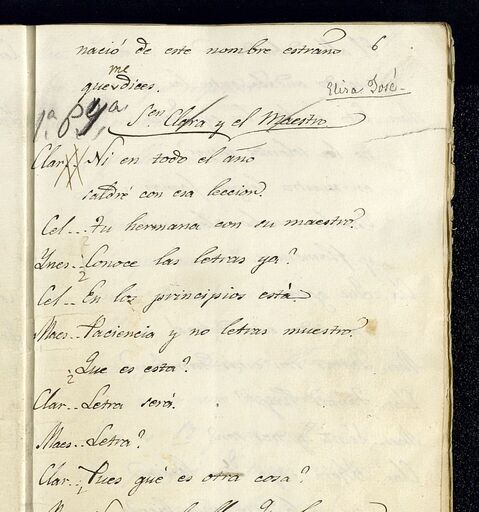 nació de este nombre estraño 6
que me dices.
Elisa José
1.ª P.ª
Sen Clara y el Maestro
Clar.. Ni en todo el año
saldré con esa leccion.
Cel... tu hermana con su maestro.
Ynes. ¿Conoce las letras ya?
Cel... En los principios está
Maes.. Paciencia y no letras muestro.
¿Que es esta?
Clar.. Létra será.
Maes.. Letra?
Clar.. ¿Pues qué es otra cosa?